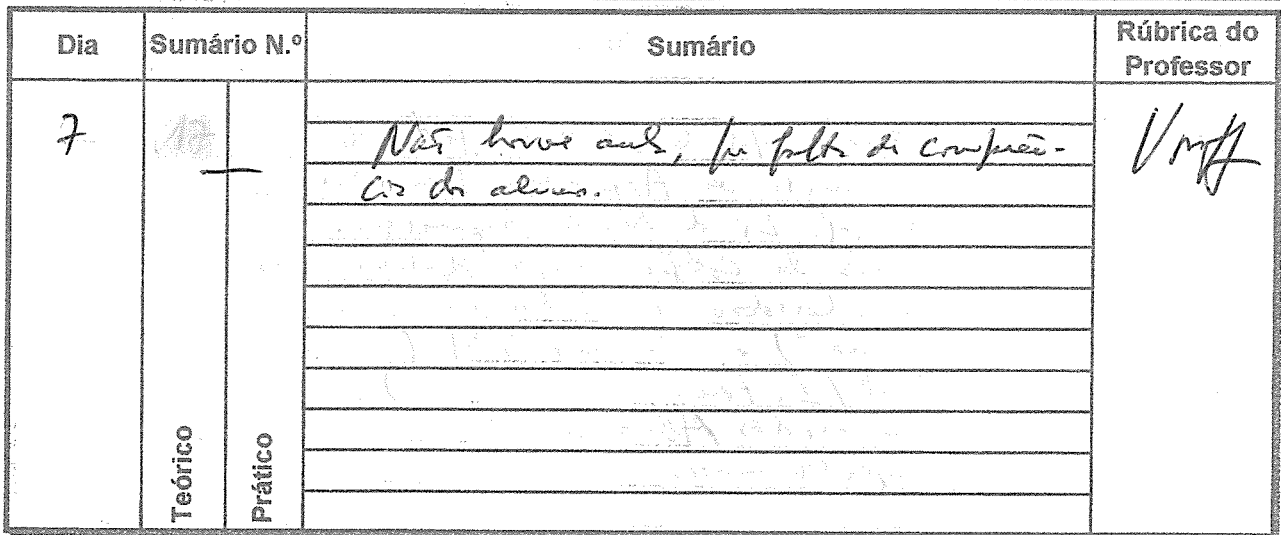 Dia Sumário N.º Sumário Rúbrica do Professor
7 — Não houve aula, por falta de comparên-
cia dos alunos.
Teórico Prático